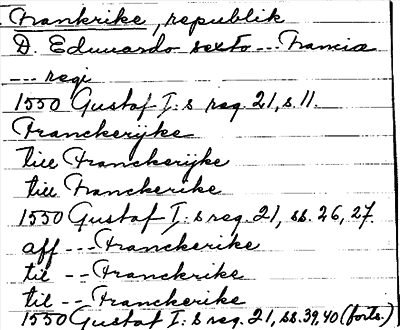 Frankrike, republik
D. Eduuardo sexto --- Franciæ
--- regi
1550 Gustaf I:s reg. 21, s. 11.
Franckerijke
till Franckerijke
till Franckerike
1550 Gustaf I:s reg. 21, ss. 26, 27.
aff --- Franckerike
til -- Franckrike
til -- Franckerike
1550 Gustaf I:s reg. 21, ss. 39, 40 (forts.)